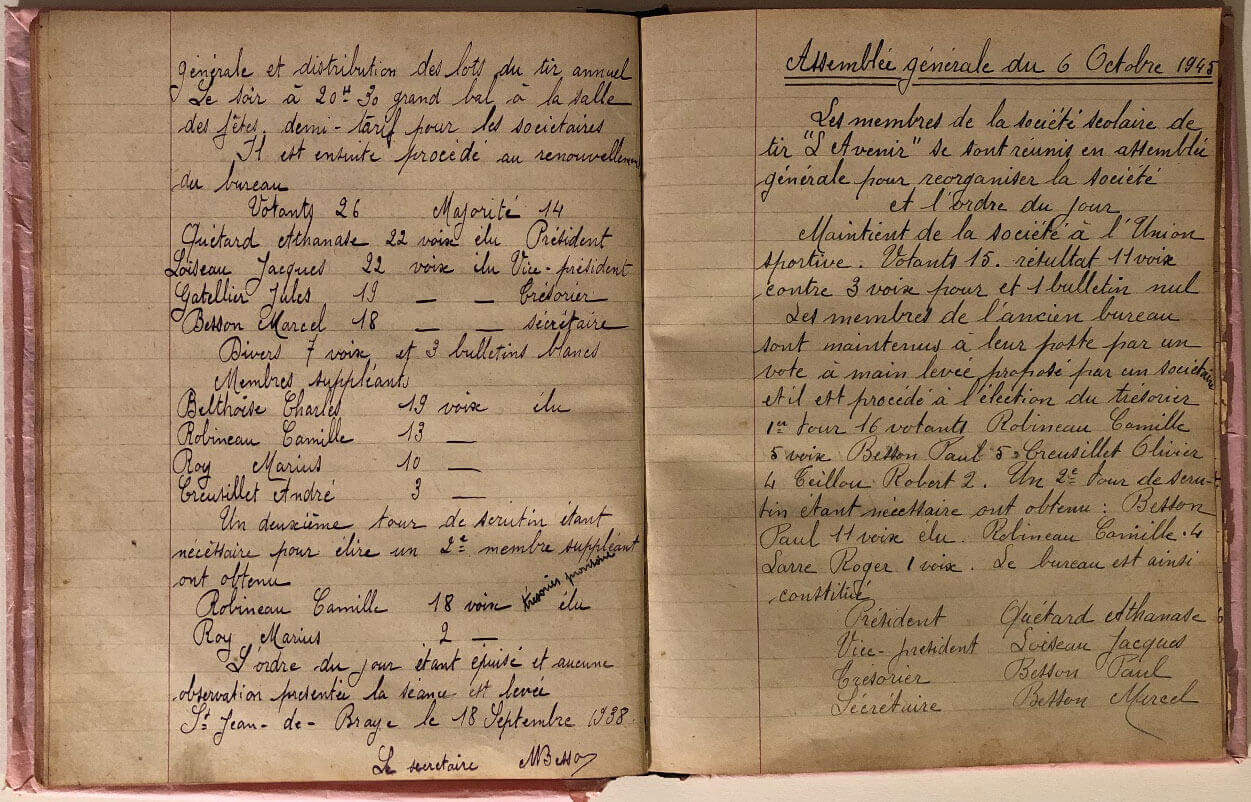 générale et distribution des lots du tir annuel
Le soir à 20H 30 grand bal à la salle
des fêtes. demi-tarif pour les societaires
Il est ensuite procédé au renouvellement
du bureau
Votants 26 Majorité 14
Quétard Athanase 22 voix élu Président
Loiseau Jacques 22 voix élu Vice-président
Gatellier Jules 19 — — Trésorier
Besson Marcel 18 — — sécrétaire
Divers 7 voix et 3 bulletins blancs
Membres suppléants
Belthoise Charles 19 voix élu
Robineau Camille 13 —
Roy Marius 10 —
Creusillet André 3 —
Un deuxième tour de scrutin étant
nécéssaire pour élire un 2e membre suppléant
ont obtenu
trésorier provisoire
Robineau Camille 18 voix élu
Roy Marius 2 —
L'ordre du jour étant épuisé et aucune
observation presentée la séance est levée
St Jean-de-Braye le 18 Septembre 1938.
Le secretaire MBesson
Assemblée générale du 6 Octobre 1945
Les membres de la société scolaire de
tir "L'Avenir" se sont reunis en assemblée
générale pour reorganiser la société
et l'ordre du jour
Maintient de la société à l'Union
sportive. Votants 15. résultat 11 voix
contre 3 voix pour et 1 bulletin nul
Les membres de l'ancien bureau
sont maintenus à leur poste par un
vote a main levée proposé par un sociétaire
et il est procédé à l'élection du trésorier
1er tour 16 votants Robineau Camille
5 voix Besson Paul 5 Creusillet Olivier
4 Teillou Robert 2. Un 2e tour de scru-
tin étant nécéssaire ont obtenu : Besson
Paul 11 voix élu. Robineau Camille. 4
Larre Roger 1 voix. Le bureau est ainsi
constitué
Président Quétard Athanase
Vice-président Loiseau Jacques
Trésorier Besson Paul
Sécrétaire Besson Marcel